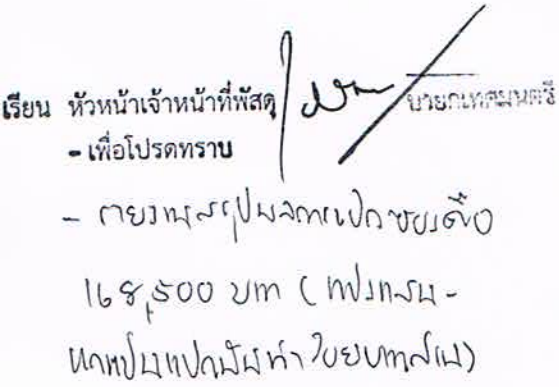 เรียน หัวหน้าเจ้าหน้าที่พัสดุ นายกเทศมนตรี
- เพื่อโปรดทราบ
- รายงานสรุปผลการเปิดซอง
168,500 บาท (หนึ่งแสน-
หกหมื่นแปดพันห้าร้อยบาทถ้วน)